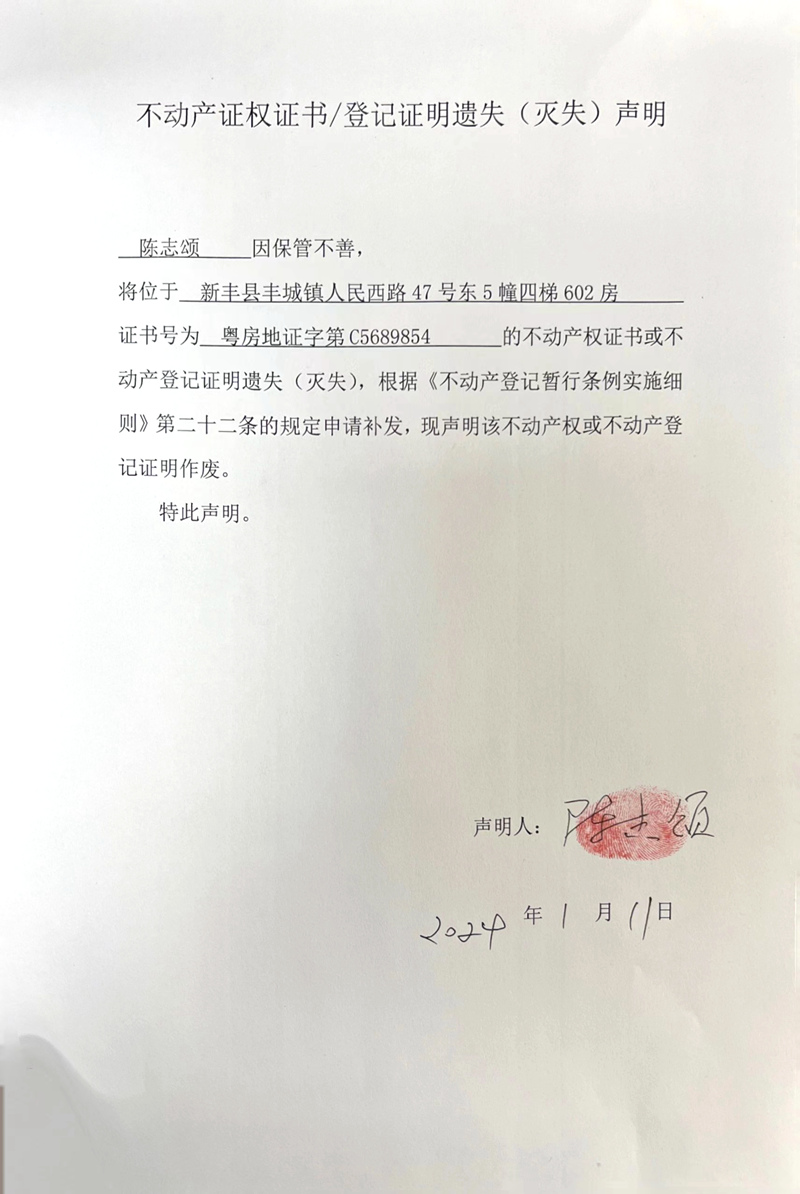 不动产证权证书/登记证明遗失（灭失）声明
陈志颂 因保管不善，
将位于 新丰县丰城镇人民西路 47 号东 5 幢四梯 602 房
证书号为 粤房地证字第 C5689854 的不动产权证书或不
动产登记证明遗失（灭失），根据《不动产登记暂行条例实施细
则》第二十二条的规定申请补发，现声明该不动产权或不动产登
记证明作废。
特此声明。
声明人：陈志颂
2024 年 1 月 11 日